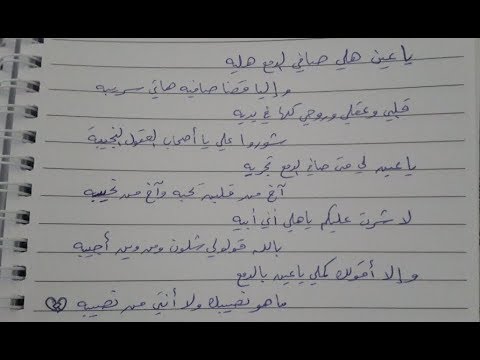 يا عين هلي صافي الدمع هليه
و إليا قضا صافيه هاتي سريبه
قلبي وعقلي وروحي كلها في يديه
شوروا علي يا أصحاب العقول النجيبة
يا عين لي متى صافي الدمع تجريه
آخ من قلب تحبه وآخ من
لا شرت عليكم ياهلي أني أبيه
بالله قولولي شلون ومن وين أجيبه
و إلا أقولك كملي يا عين بالدمع
ما هو نصيبك ولا أنتي من نصيبه